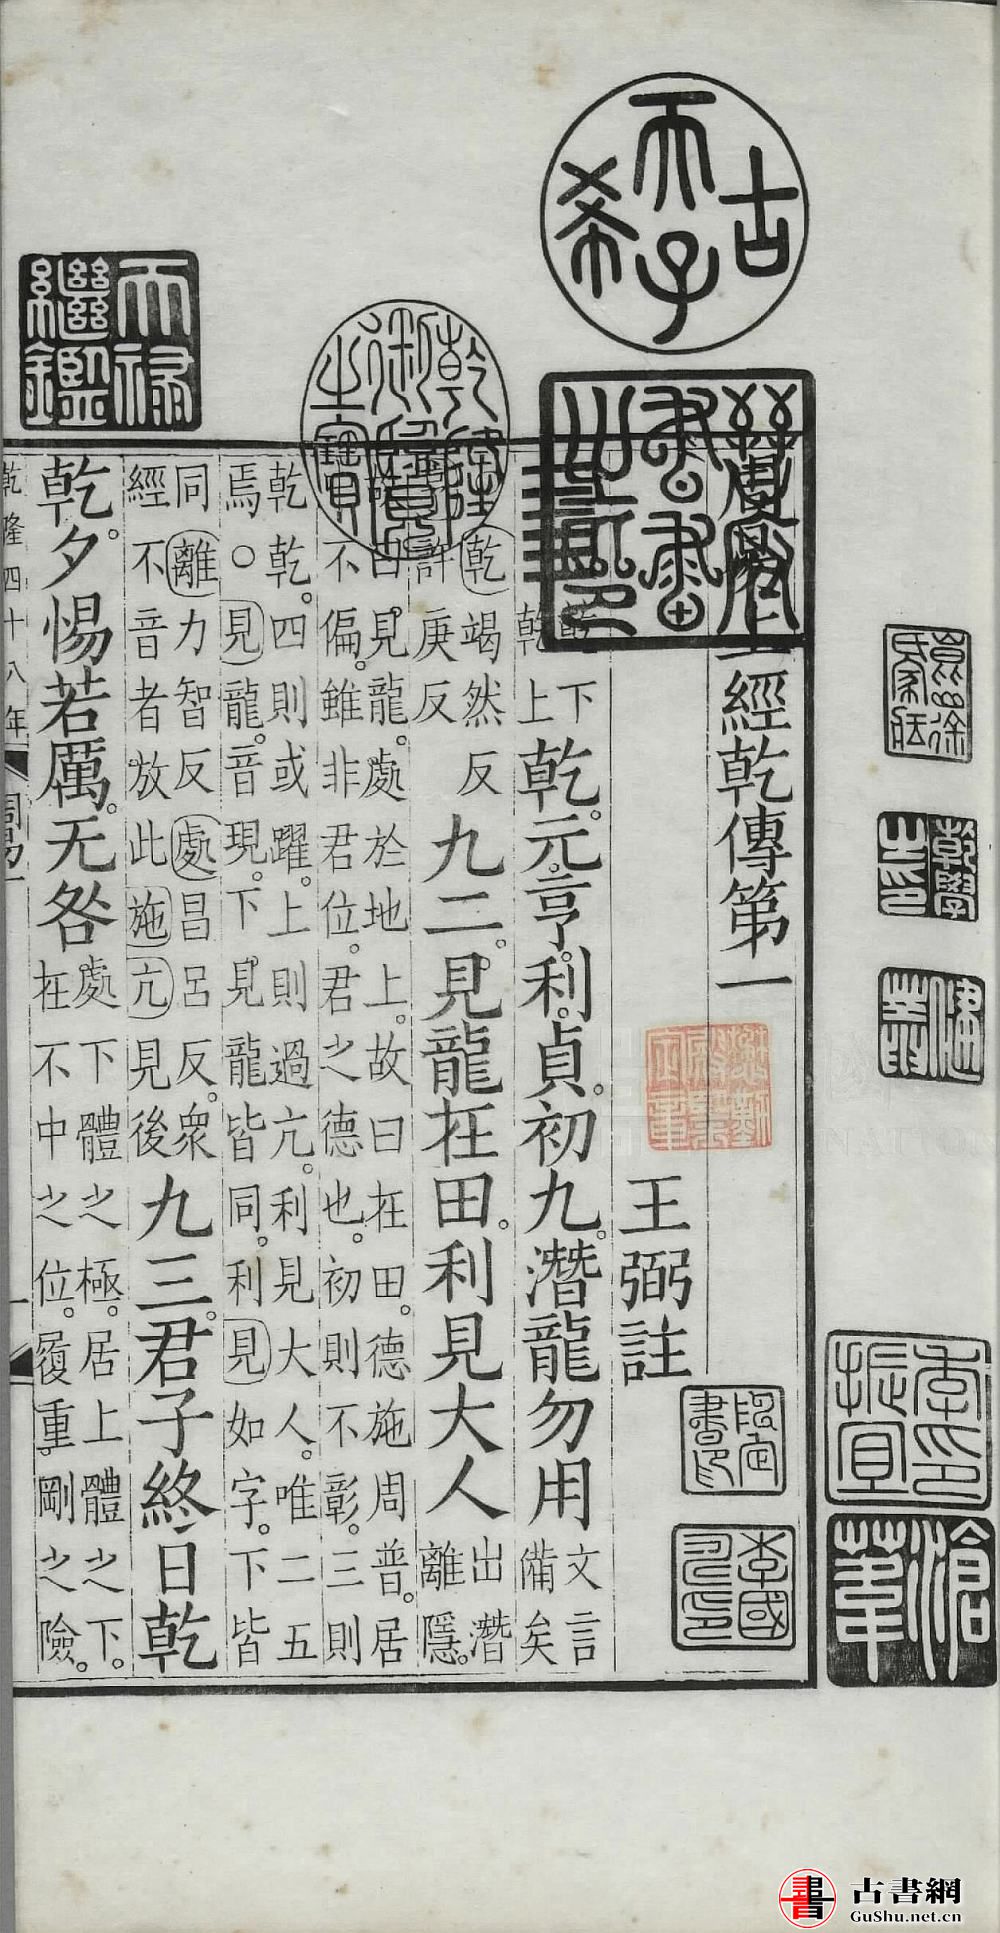 古希天子
周易上經乾傳第一
王弼註
乾下
乾上
乾。元。亨。利。貞。初九。潛龍勿用
文言
備矣
乾竭然反
許庚反
九二。見龍在田。利見大人
出潛
離隱。
曰見龍。處於地上。故曰在田。德施周普。居
不偏。雖非君位。君之德也。初則不彰。三則
乾乾。四則或躍。上則過亢。利見大人。唯二五
焉。○見龍。音現。下見龍皆同。利見如字。下皆
同離力智反處昌呂反。衆
經不音者放此施亢見後
九三。君子終日乾
乾。夕惕若厲。无咎
處下體之極。居上體之下。
在不中之位。履重剛之險。
乾隆四十八年
周易一
一
乾隆御覽之寶
天祿繼鑑
乾學之印
季振宜印
滄葦
古書網
GuShu.net.cn